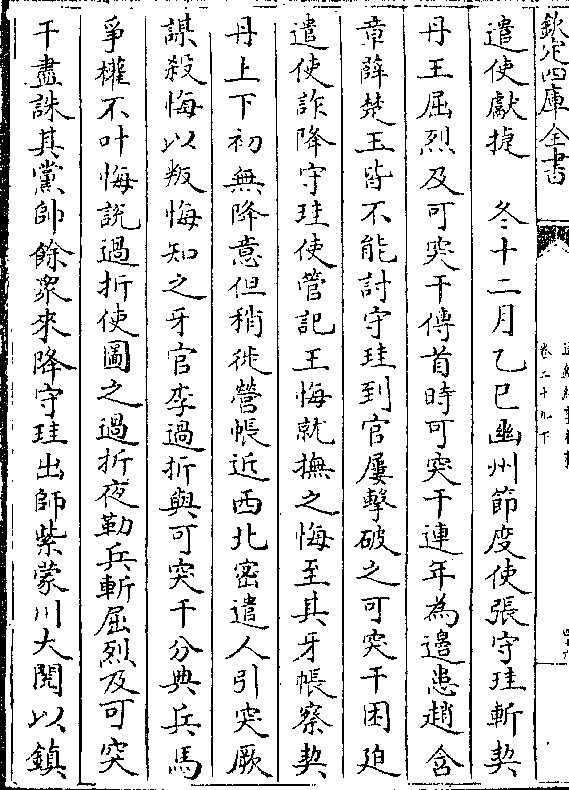 欽定四庫全書
卷二十九下
遣使獻捷　冬十二月乙巳幽州節度使張守珪斬契
丹王屈烈及可突干傳首時可突干連年為邉患趙含
章薛楚玉皆不能討守珪到官屢擊破之可突干困迫
遣使詐降守珪使管記王悔就撫之悔至其牙帳察契
丹上下初無降意但稍徙營帳近西北密遣人引突厥
謀殺悔以叛悔知之牙官李過折與可突干分典兵馬
爭權不叶悔說過折使圖之過折夜勒兵斬屈烈及可突
干盡誅其黨帥餘衆來降守珪出師紫蒙川大閱以鎮